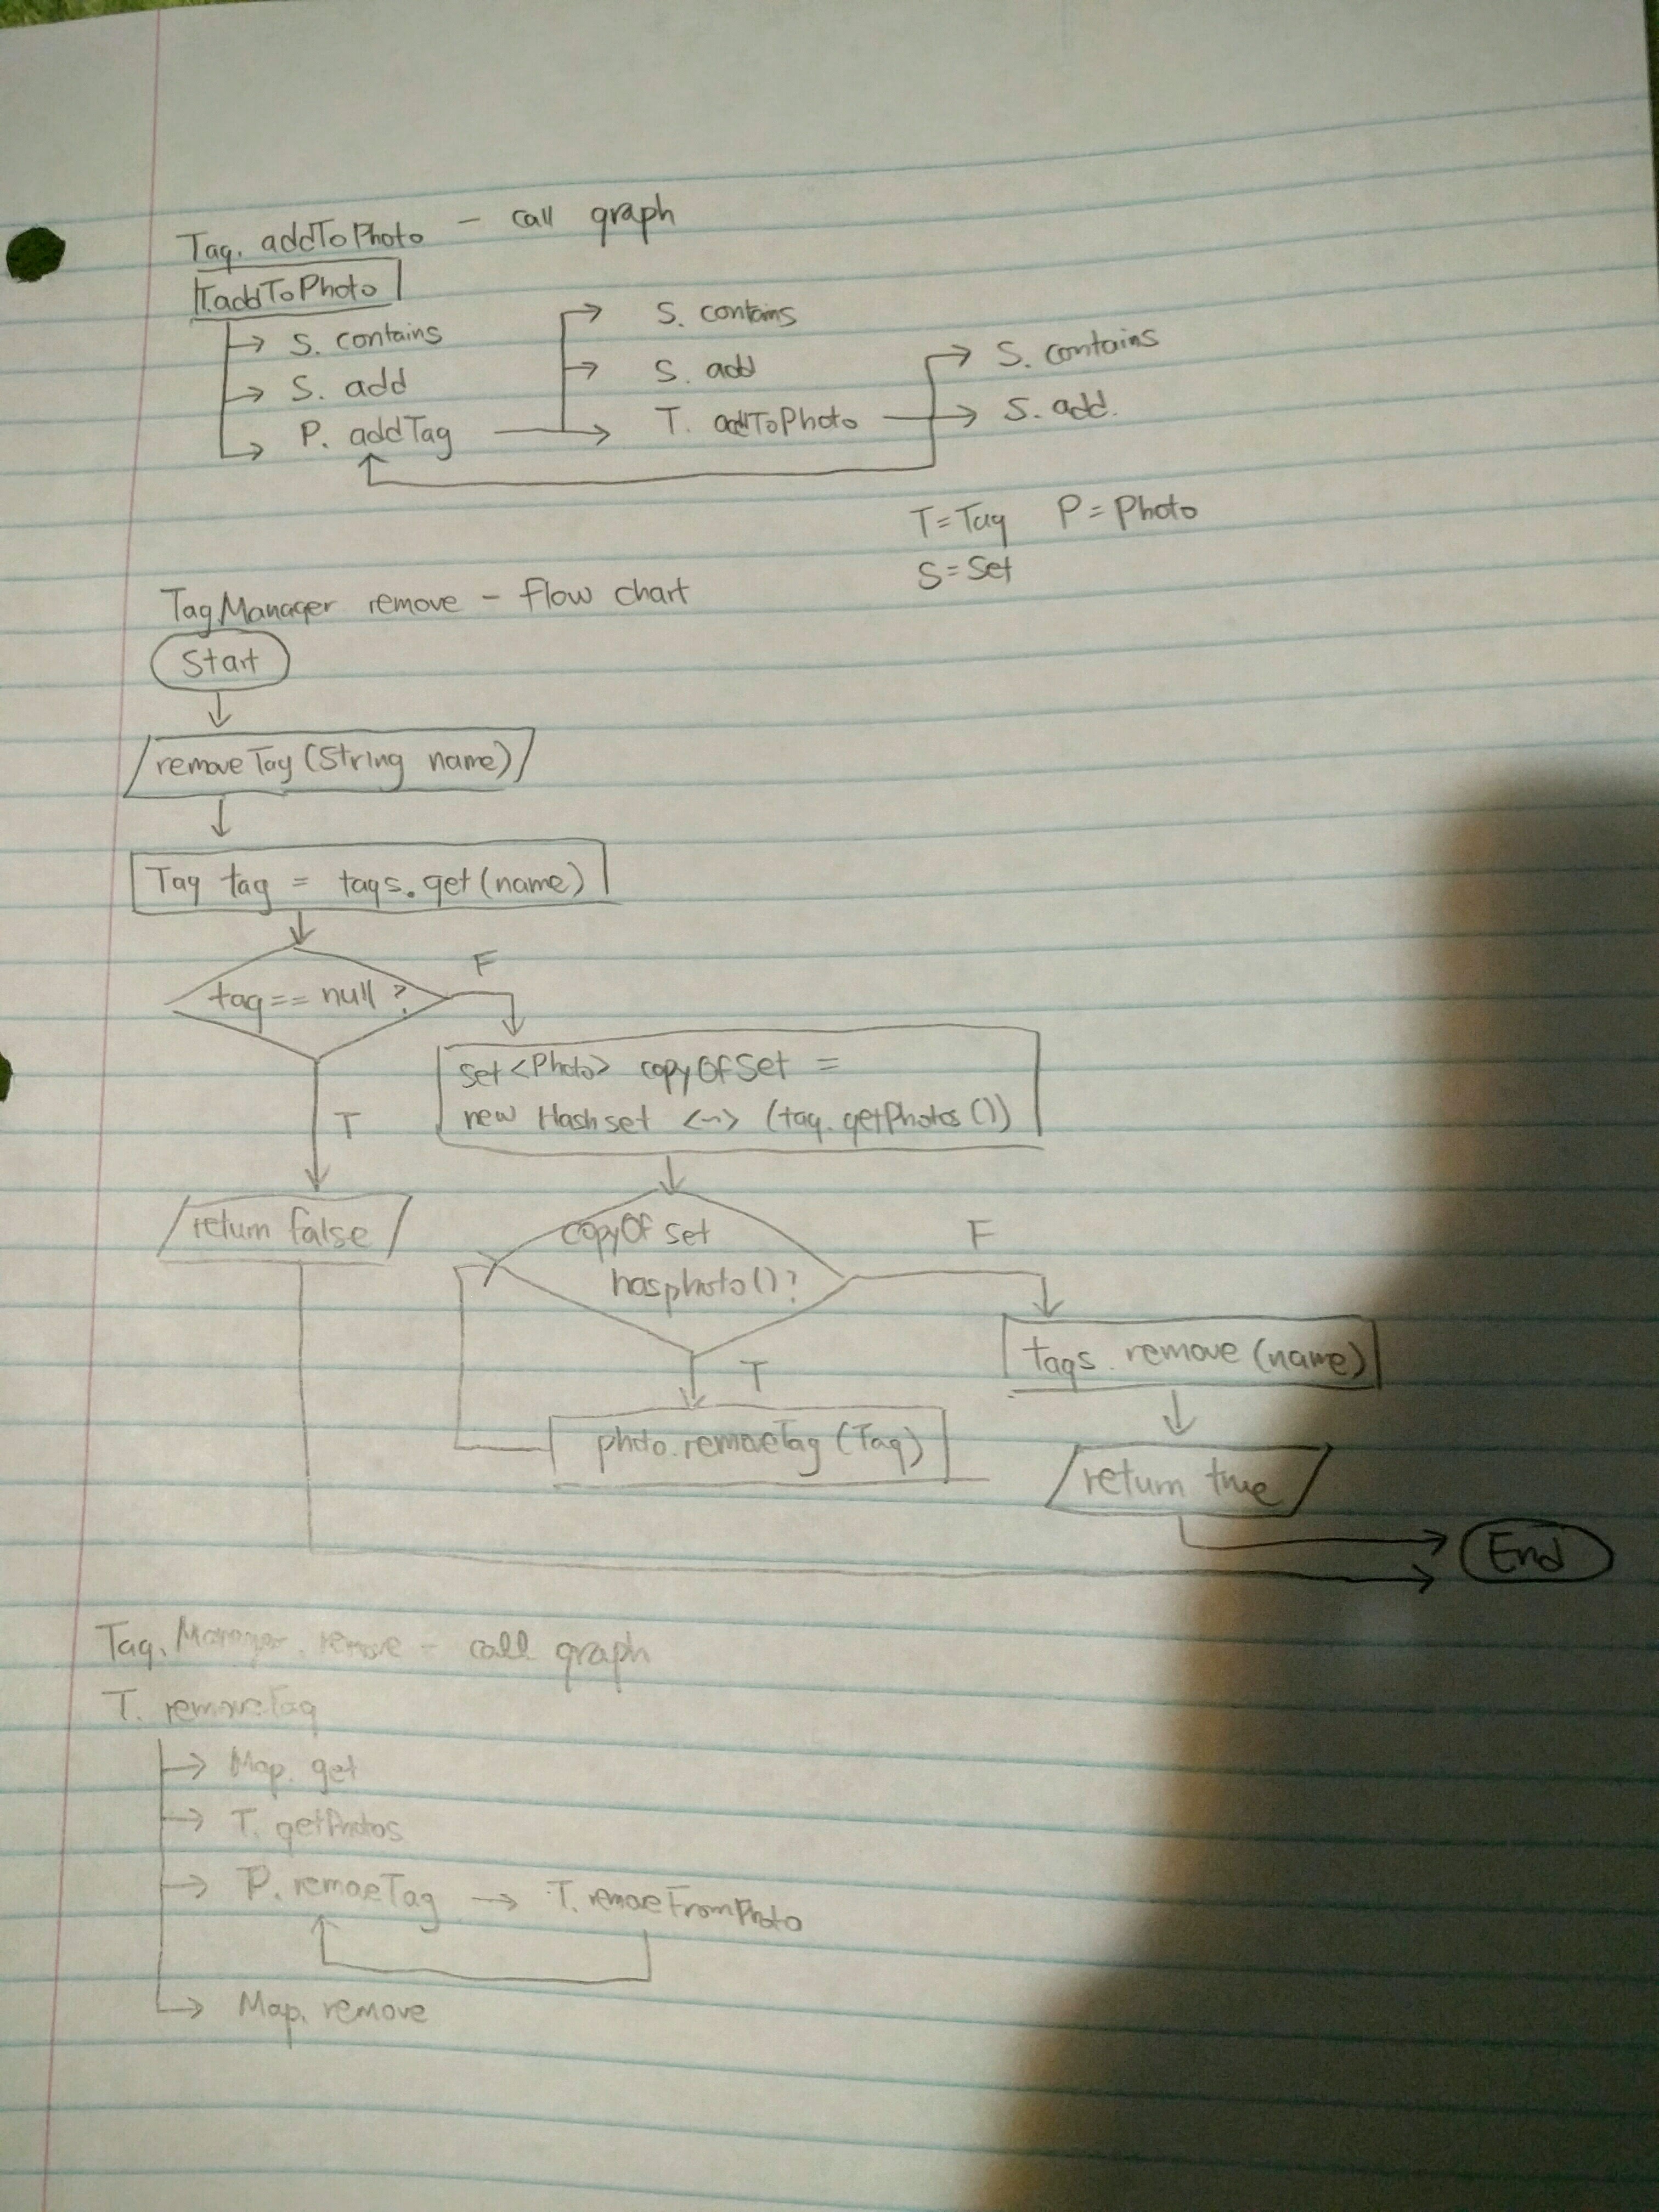 Tag. addToPhoto - call graph
T.addToPhoto
S. contains
S. add
P. addTag
S. contains
S. add
T. addToPhoto
S. contains
S. add.
T=Tag P=Photo
S=Set
Tag.Manager remove - flow chart
Start
removeTag(String name)
Tag tag = tags.get(name)
tag==null?
F
T
Set<Photo> copyOfSet =
new Hashset <~> (tag.getPhotos())
return false
copyOf set
hasphoto()?
F
T
tags.remove(name)
photo.removeTag(Tag)
return true
End
Tag.Manager.remove - call graph
T. removeTag
Map. get
T. getPhotos
P. removeTag → T. removeFromPhoto
Map. remove